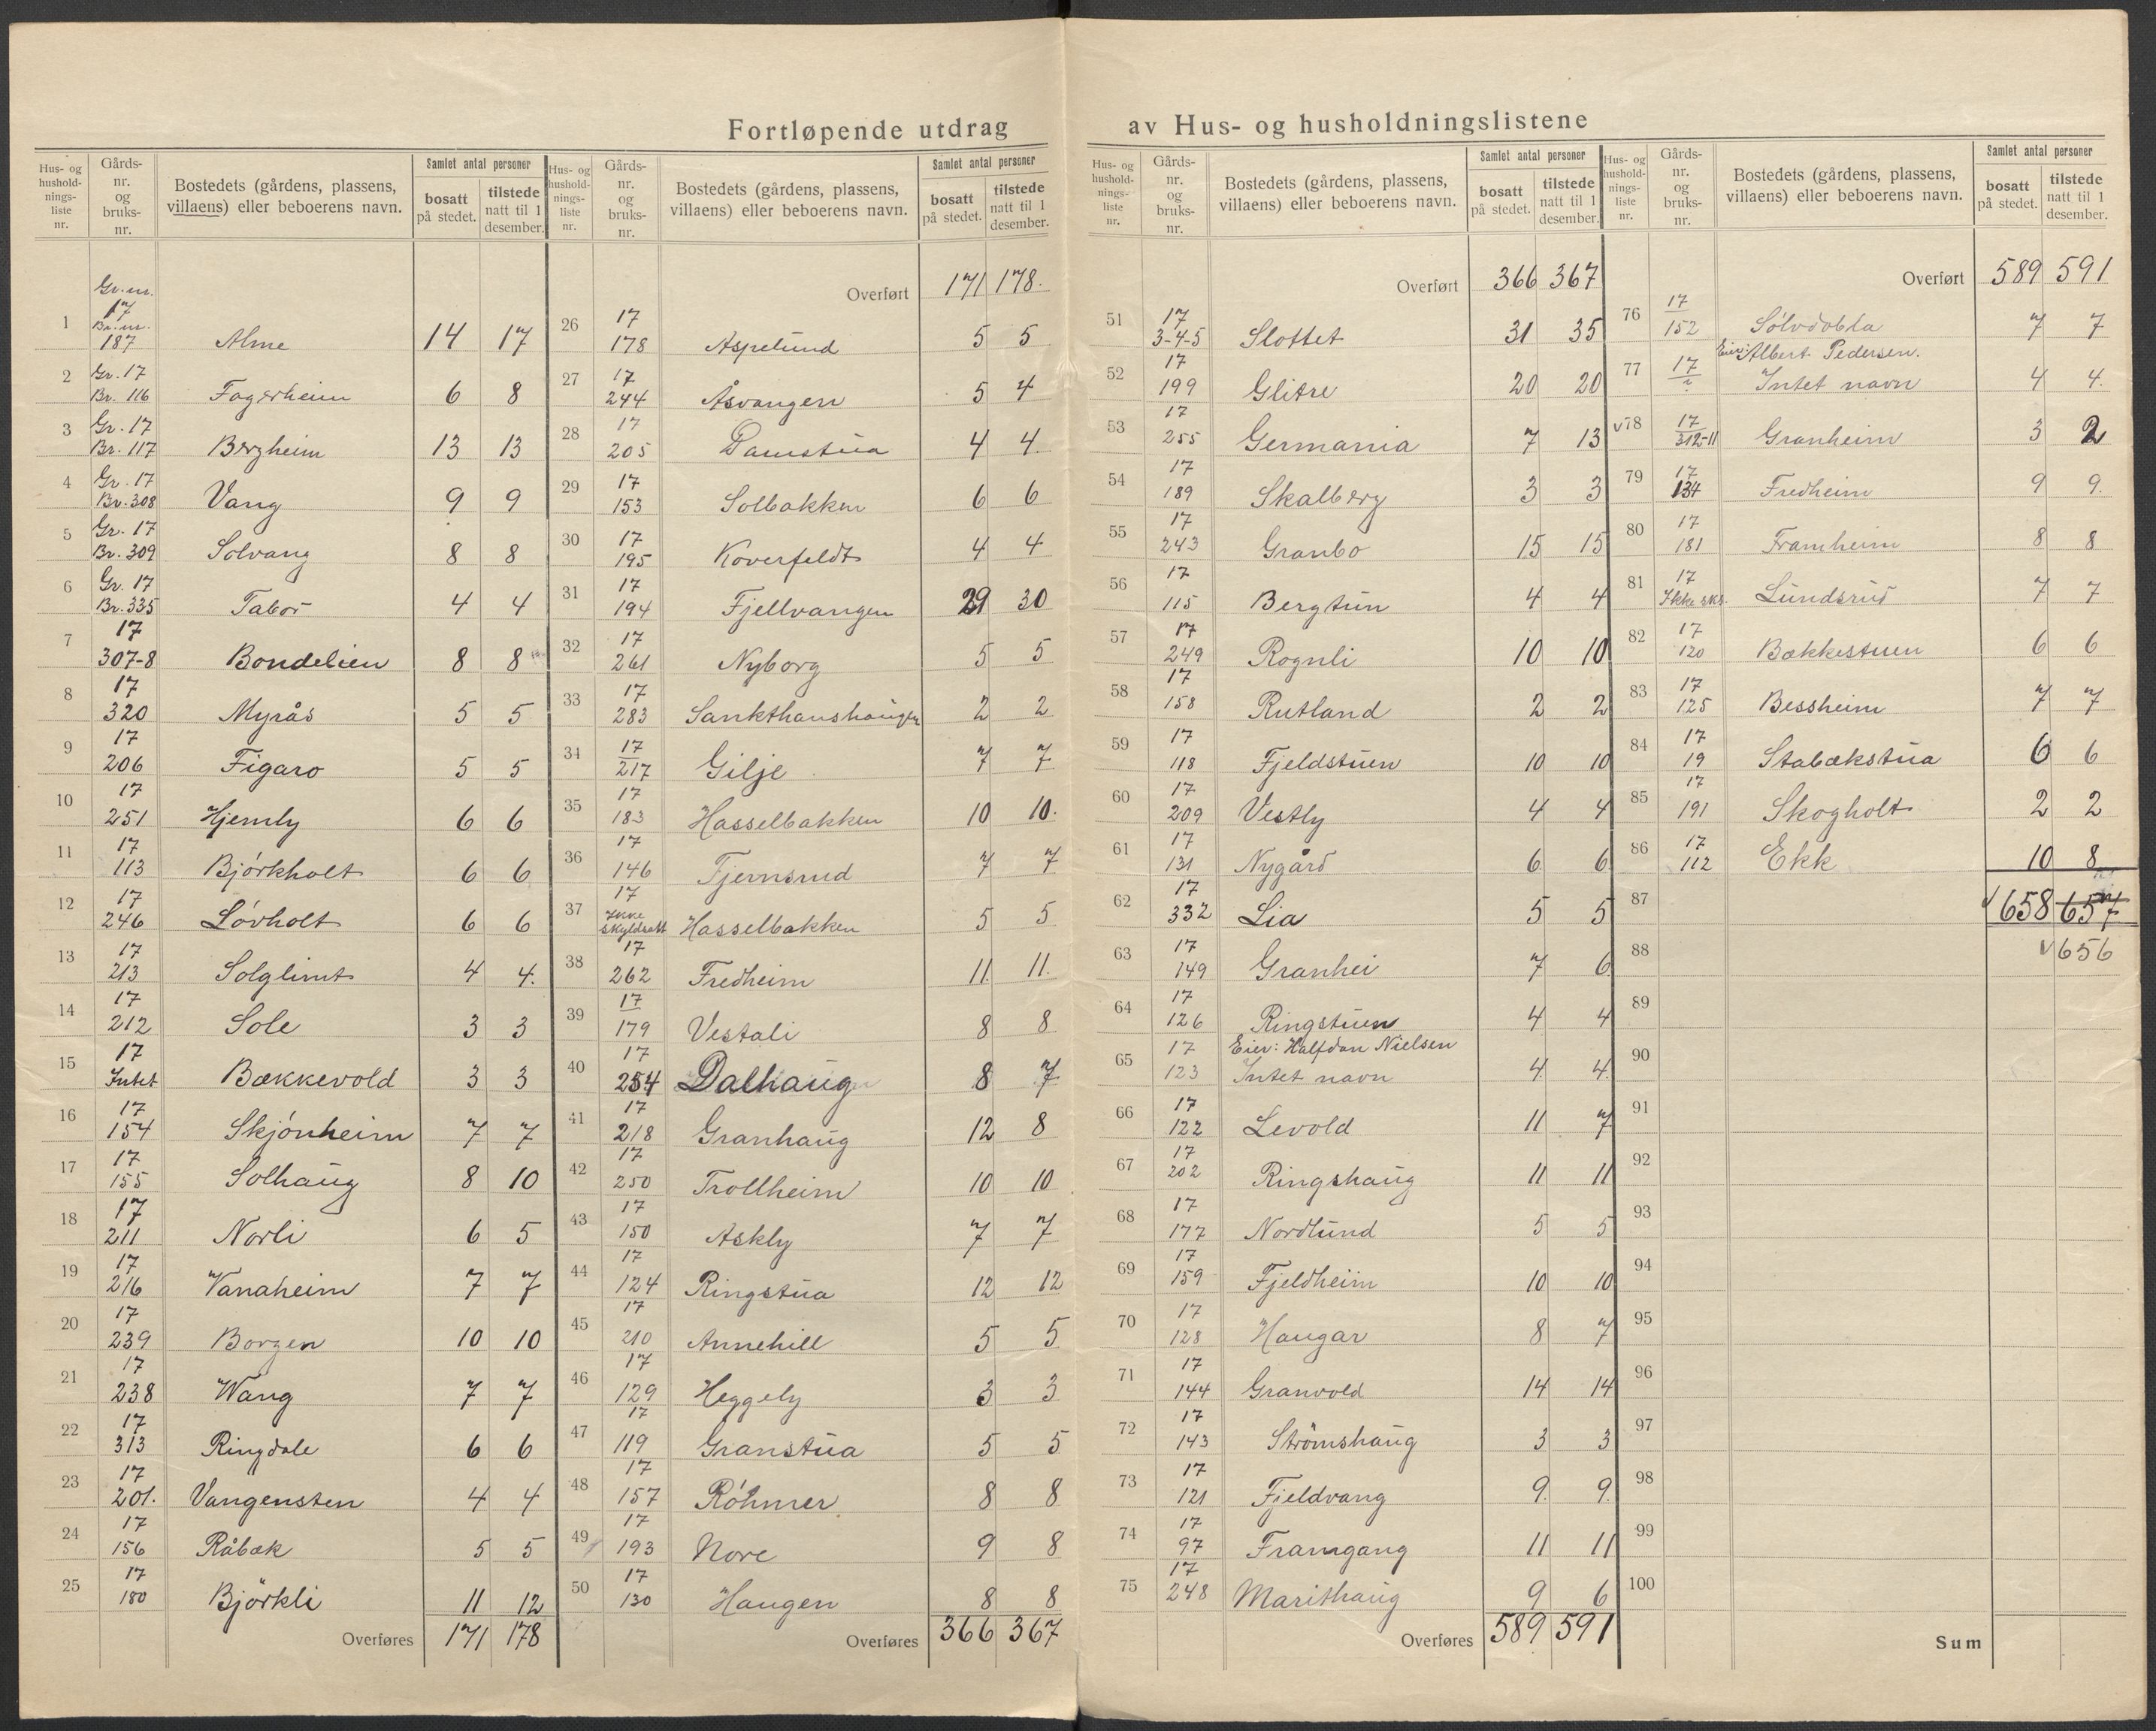 Fortløpende utdrag av Hus- og husholdningslistene
Hus- og husholdnings- liste nr. | Gårds- nr. og bruks- nr. | Bostedets (gårdens, plassens, villaens) eller beboerens navn. | Samlet antal personer | bosatt på stedet. | tilstede natt til 1 desember.
1 Gr.nr. 17 Br.nr. 187 Alme 14 17
2 Gr. 17 Br. 116 Fagerheim 6 8
3 Gr. 17 Br. 117 Bergheim 13 13
4 Gr. 17 Br. 308 Vang 9 9
5 Gr. 17 Br. 309 Solvang 8 8
6 Gr. 17 Br. 335 Tabor 4 4
7 17 307-8 Bondelien 8 8
8 17 320 Myrås 5 5
9 17 206 Figaro 5 5
10 17 251 Hjemly 6 6
11 17 113 Bjørkholt 6 6
12 17 246 Løvholt 6 6
13 17 213 Solglimt 4 4.
14 17 212 Sole 3 3
15 17 Intet Bækkevold 3 3
16 17 154 Skjønheim 7 7
17 17 155 Solhaug 8 10
18 17 211 Norli 6 5
19 17 216 Vanaheim 7 7
20 17 239 Borgen 10 10
21 17 238 Wang 7 7
22 17 313 Ringdale 6 6
23 17 201. Vangensten 4 4
24 17 156 Råbæk 5 5
25 17 180 Björkli 11 12
Overføres 171 178
Hus- og husholdnings- liste nr. | Gårds- nr. og bruks- nr. | Bostedets (gårdens, plassens, villaens) eller beboerens navn. | Samlet antal personer | bosatt på stedet. | tilstede natt til 1 desember.
Overført 171 178.
26 17 178 Aspelund 5 5
27 17 244 Åsvangen 5 4
28 17 205 Damstua 4 4.
29 17 153 Solbakken 6 6
30 17 195 Koverfeldt 4 4
31 17 194 Fjellvangen 29 30
32 17 261 Nyborg 5 5
33 17 283 Sankthanshaugen 2 2
34 17 217 Gilje 7 7
35 17 183 Hasselbakken 10 10.
36 17 146 Tjernsrud 7 7
37 17 Ikke skyldsatt Hasselbakken 5 5
38 17 262 Fredheim 11 11.
39 17 179 Vestali 8 8
40 17 254 Dalhaug 8 7
41 17 218 Granhaug 12 8
42 17 250 Trollheim 10 10
43 17 150 Askly 7 7
44 17 124 Ringstua 12 12
45 17 210 Annehill 5 5
46 17 129 Heggely 3 3
47 17 119 Granstua 5 5
48 17 157 Røhmer 8 8
49 17 193 Nore 9 8
50 17 130 Haugen 8 8
Overføres 366 367
Hus- og husholdnings- liste nr. | Gårds- nr. og bruks- nr. | Bostedets (gårdens, plassens, villaens) eller beboerens navn. | Samlet antal personer | bosatt på stedet. | tilstede natt til 1 desember.
Overført 366 367
51 17 3-4-5 Slottet 31 35
52 17 199 Glitre 20 20
53 17 255 Germania 7 13
54 17 189 Skalberg 3 3
55 17 243 Granbo 15 15
56 17 115 Bergtun 4 4
57 17 249 Rognli 10 10
58 17 158 Rutland 2 2
59 17 118 Fjeldstuen 10 10
60 17 209 Vestly 4 4
61 17 131 Nygård 6 6
62 17 332 Lia 5 5
63 17 149 Granhei 7 6
64 17 126 Ringstuen 4 4
65 17 123 Eier: Halfdan Nielsen
Intet navn 4 4.
66 17 122 Levold 11 7
67 17 202 Ringshaug 11 11
68 17 177 Nordlund 5 5
69 17 159 Fjeldheim 10 10
70 17 128 Haugar 8 7
71 17 144 Granvold 14 14
72 17 143 Strömshaug 3 3
73 17 121 Fjeldvang 9. 9.
74 17 97 Framgang 11 11
75 17 248 Marithaug 9 6
Overføres 589 591
Hus- og husholdnings- liste nr. | Gårds- nr. og bruks- nr. | Bostedets (gårdens, plassens, villaens) eller beboerens navn. | Samlet antal personer | bosatt på stedet. | tilstede natt til 1 desember.
Overført 589 591
76 17 152 Sølvdobla 7 7
77 17 ? Eier: Albert Pedersen.
Intet navn 4 4.
v78 17 312-11 Granheim 3 2
79 17 134 Fredheim 9 9.
80 17 181 Framheim 8 8
81 17 Ikke sks. Lundsrud 7 7
82 17 120 Bækkestuen 6 6
83 17 125 Bessheim 7 7
84 17 19 Stabækstua 6 6
85 17 191 Skogholt 2 2
86 17 112 Ekk 10 8
87 √658 657
88 √656
89
90
91
92
93
94
95
96
97
98
99
100
Sum